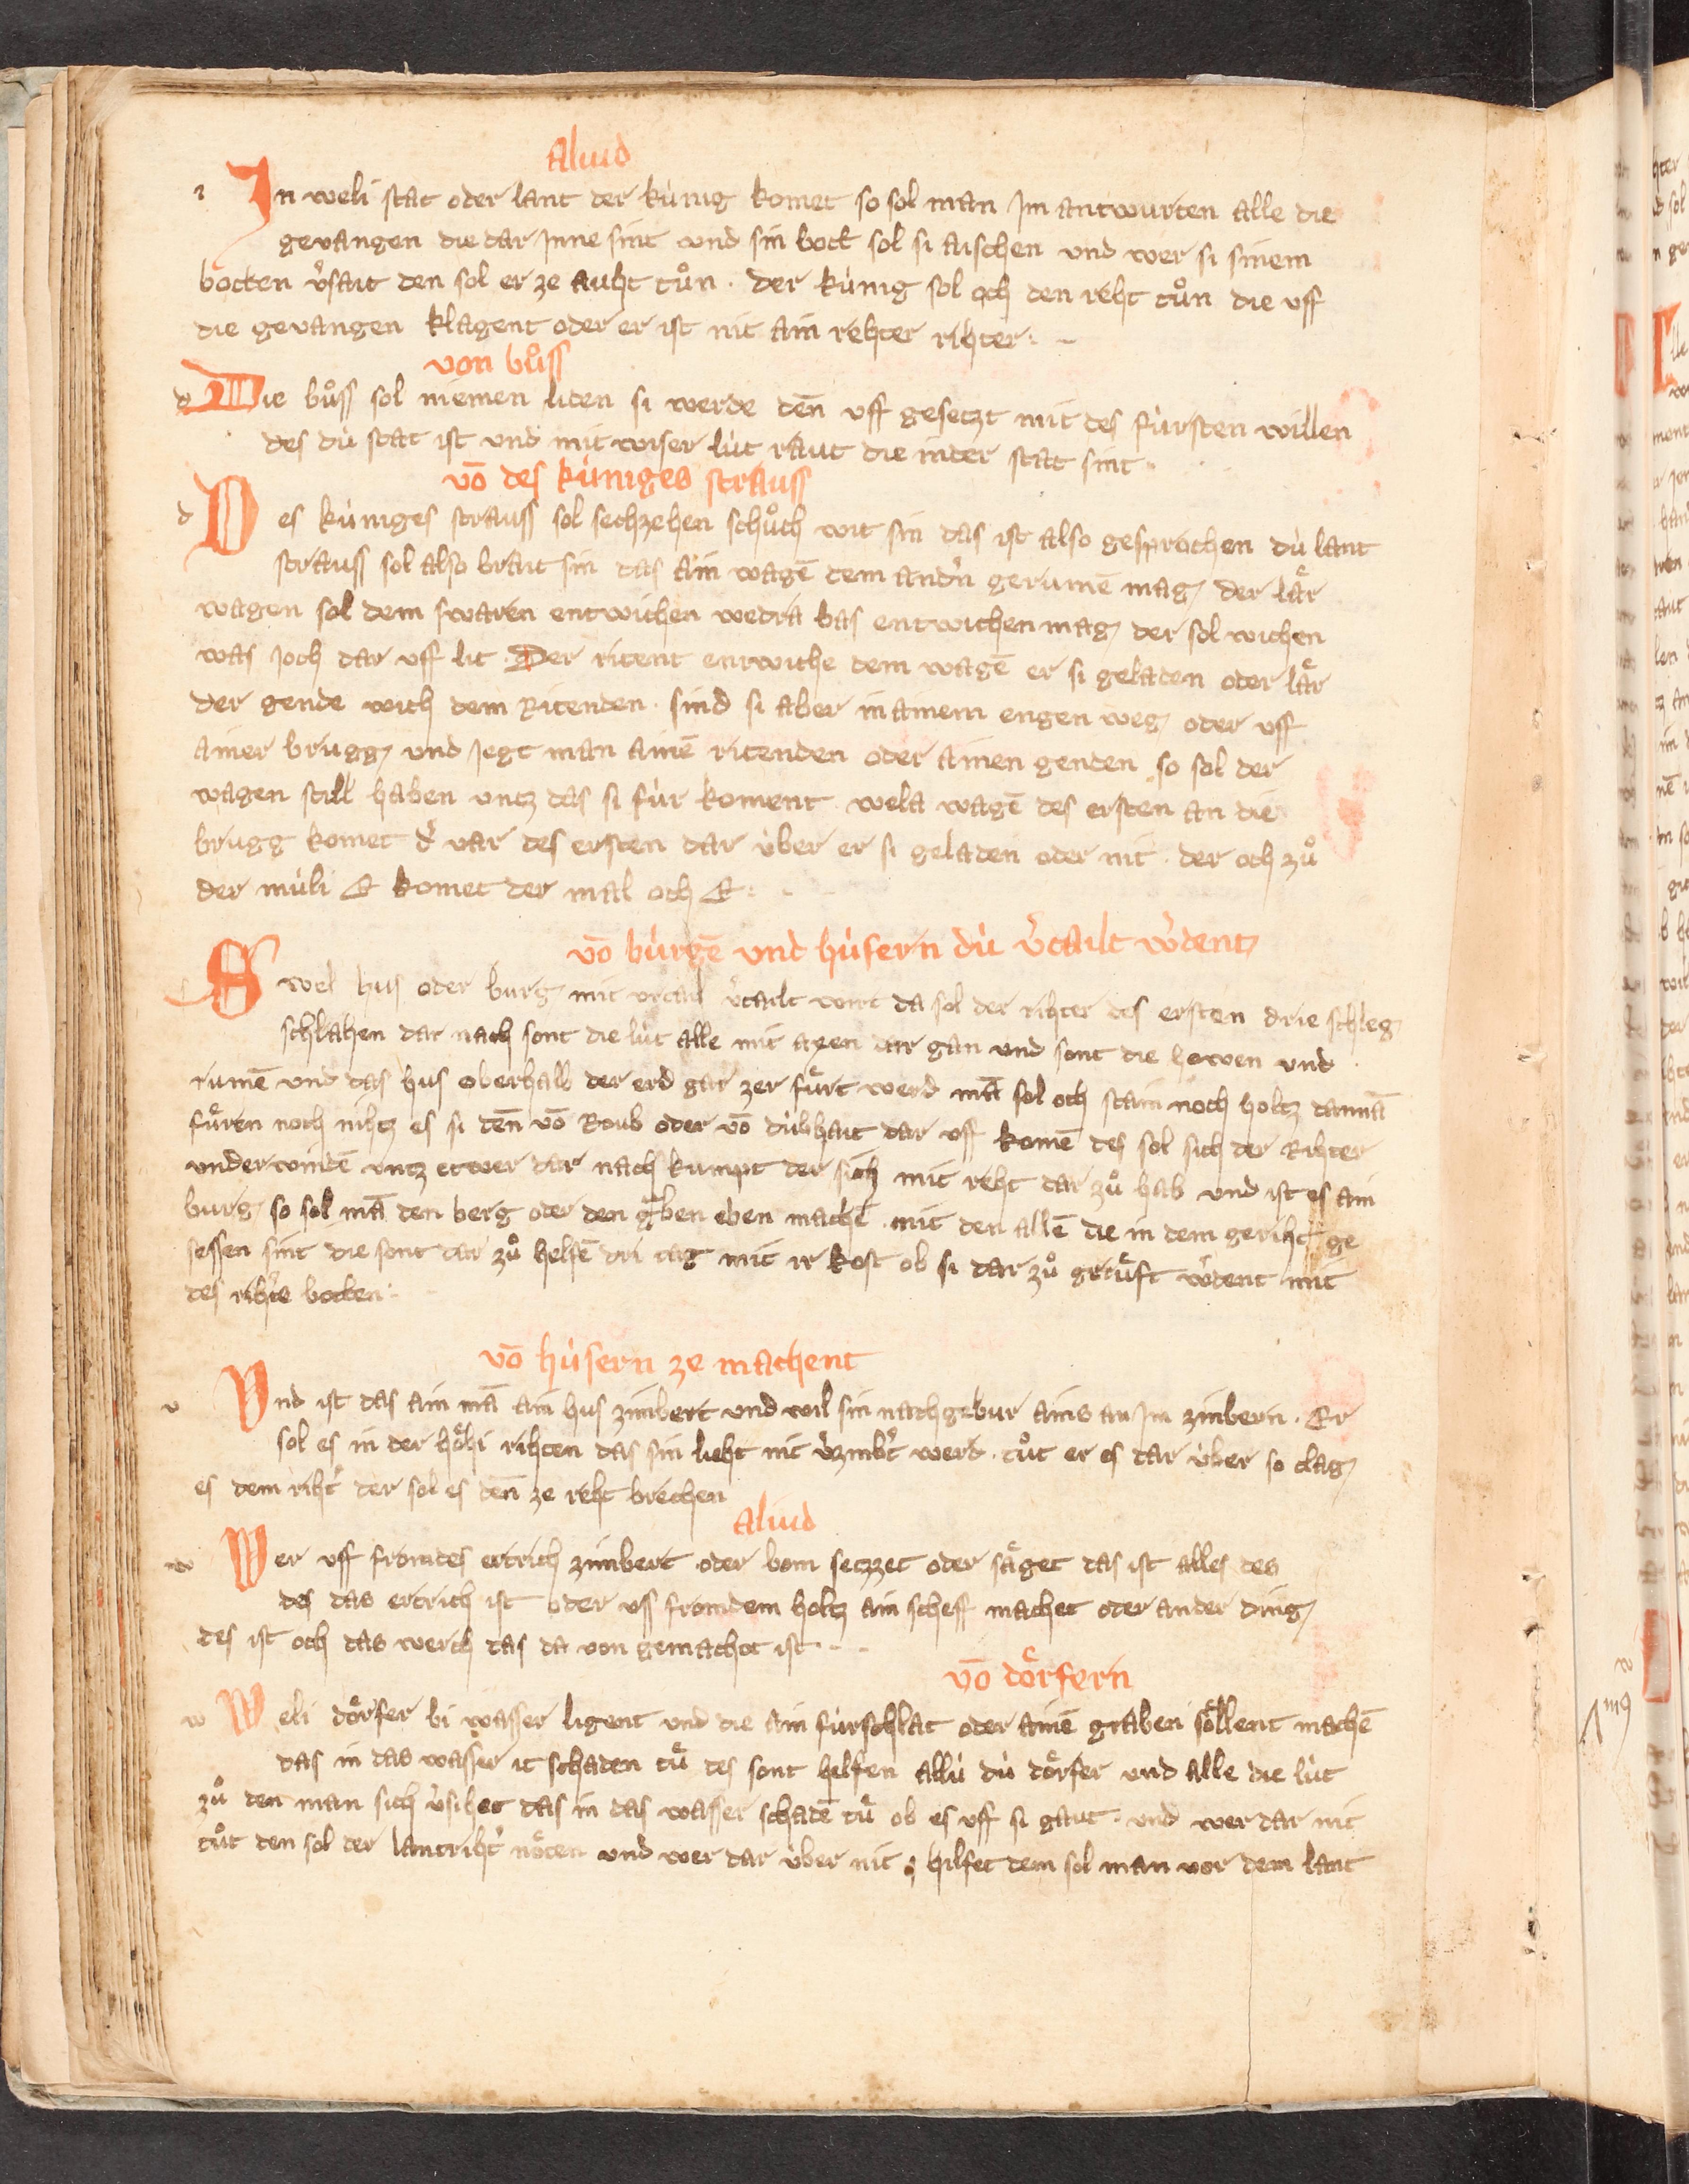 Aliud
In weli stat oder lant der kúnig komet so sol man Jm antwurten alle die
gevangen die dar Jnne sint vnd sin bott sol si aischen vnd wer si sinem
botten v̓sait den sol er ze auht tůn · der kúnig sol och den reht tůn die vff
die gevangen klagent oder er ist nit ain rehter rihter ·
von bůss
Die bůss sol niemen liden si werde deñ vff gesetzt mit des fúrsten willen
des dú stat ist vnd mit wiser lút raut die inder stat sint ·
võ des kúniges strauss
Des kúniges strauss sol sechzehen schůch wit sin das ist also gesprochen dú lant
strauss sol also brait sin das ain wagē dem and̓n gerumē mag der lår
wagen sol dem swaren entwichen wedra bas entwichen mag der sol wichen
was Joch dar vff lit · Der ritent entwiche dem wagē er si geladen oder lår
der gende wich dem Ritenden · sind si aber in ainem engen weg oder vff
ainer brugg vnd Jegt man ainē ritenden oder ainen genden so sol der
wagen still haben vntz das si fúr koment · wela wagē des ersten an die
brugg komet d̓ var des ersten dar vber er si geladen oder nit · der och zů
der múli E komet der mal och E ·
võ búrgē vnd húsern dú v̓tailt w̓dent
Swel hus oder burg mit vrtail v̓tailt wirt da sol der rihter des ersten drie schleg
schlahen dar nach sont die lút alle mit axen dar gan vnd sont die howen vnd
rumē vnd das hus oberhalb der erd gar zer fůrt werd mā sol och stain noch holtz dannā
fůren noch nihtz es si deñ võ Roub oder võ dúbhait dar vff komē des sol sich der Rihter
vnderwindē vntz etwer dar nach kumpt der sich mit reht dar zů hab vnd ist es ain
burg so sol mā den berg oder den gͣben eben machē · mit den allē die in dem geriht ge
sessen sint die sont dar zů helfē dri tag mit ir kost ob si dar zů gerůft w̓dent mit
des riht̓s botten ·
võ húsern ze machent
Vnd ist das ain mā ain hus zimbert vnd wil sin nachgebur ains an Jm zimbern · Er
sol es in der höhi rihten das sin lieht nit v̓zimb̓t werd · tůt er es dar úber so clag
es dem riht̓ der sol es deñ ze reht brechen
Aliud
Wer vff frömdes ertrich zimbert oder bom setzzet oder såget das ist alles des
des das ertrich ist oder vss frömdem holtz ain scheff machet oder ander ding
des ist och das werch das da von gemachot ist ·
võ dörfern
Weli dörfer bi wasser ligent vnd die ain fúrschlat oder ainē graben söllent machē
das in das wasser it schaden tů des sont helfen allú dú dörfer vnd alle die lút
zů den man sich v̓sihet das in das wasser schadē tů ob es vff si gaut · vnd wer dar nit
tůt den sol der lantriht̓ nöten vnd wer dar úber nit hilfet dem sol man vor dem lant